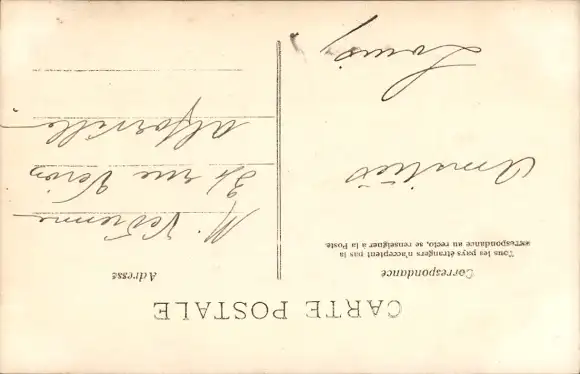 CARTE POSTALE
Correspondance
Tous les pays étrangers n'acceptent pas la
correspondance au recto, se renseigner à la Poste.
Amitiés
Louis
Adresse
M. Vedrenne
31 rue Véron
Alfortville